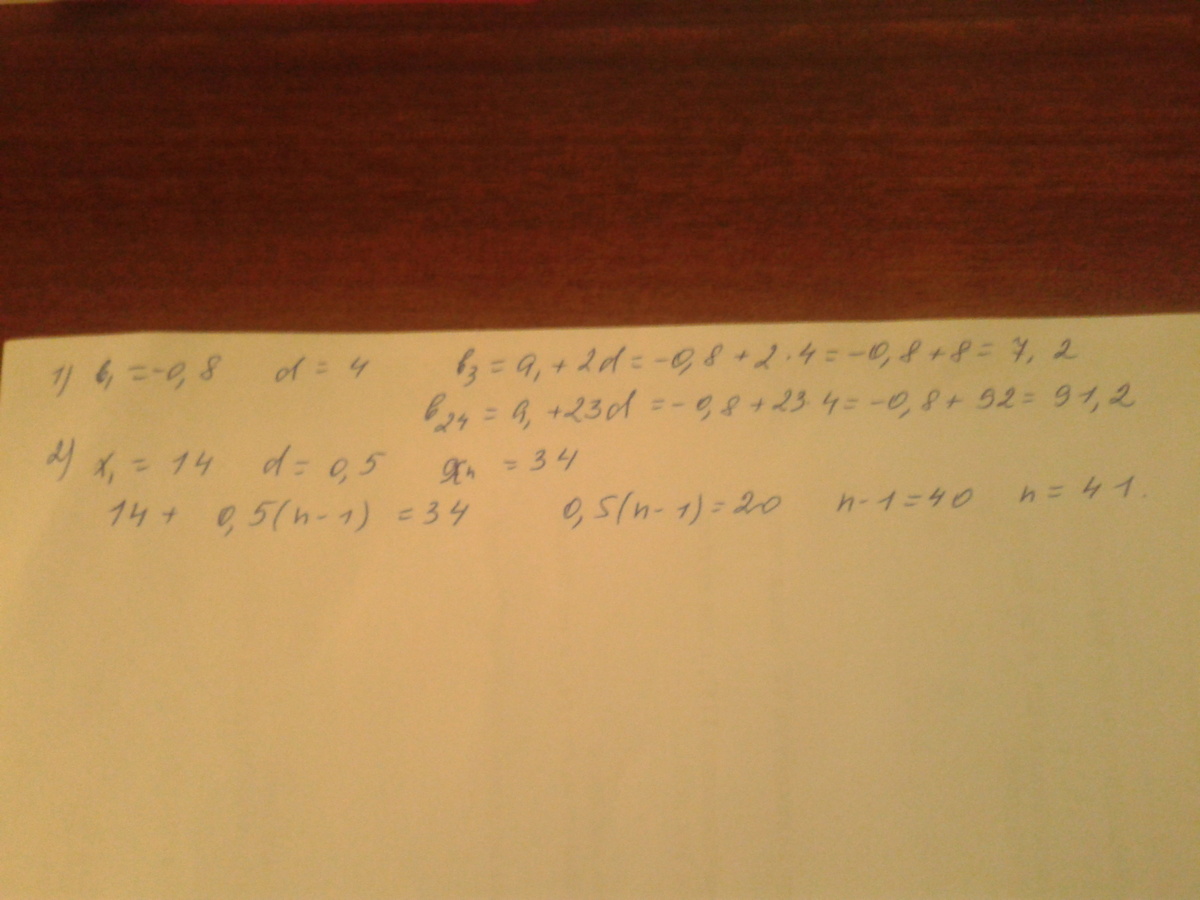 1) в₁ = -0,8 d = 4 в₃ = a₁ + 2d = -0,8 + 2·4 = -0,8 + 8 = 7,2
в₂₄ = a₁ + 23d = -0,8 + 23·4 = -0,8 + 92 = 91,2
2) x₁ = 14 d = 0,5 xₙ = 34
14 + 0,5(n-1) = 34 0,5(n-1) = 20 n-1 = 40 n = 41.